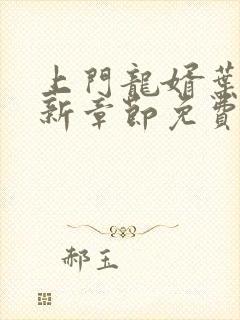 上門龍婿葉
新章節免費
郝玉